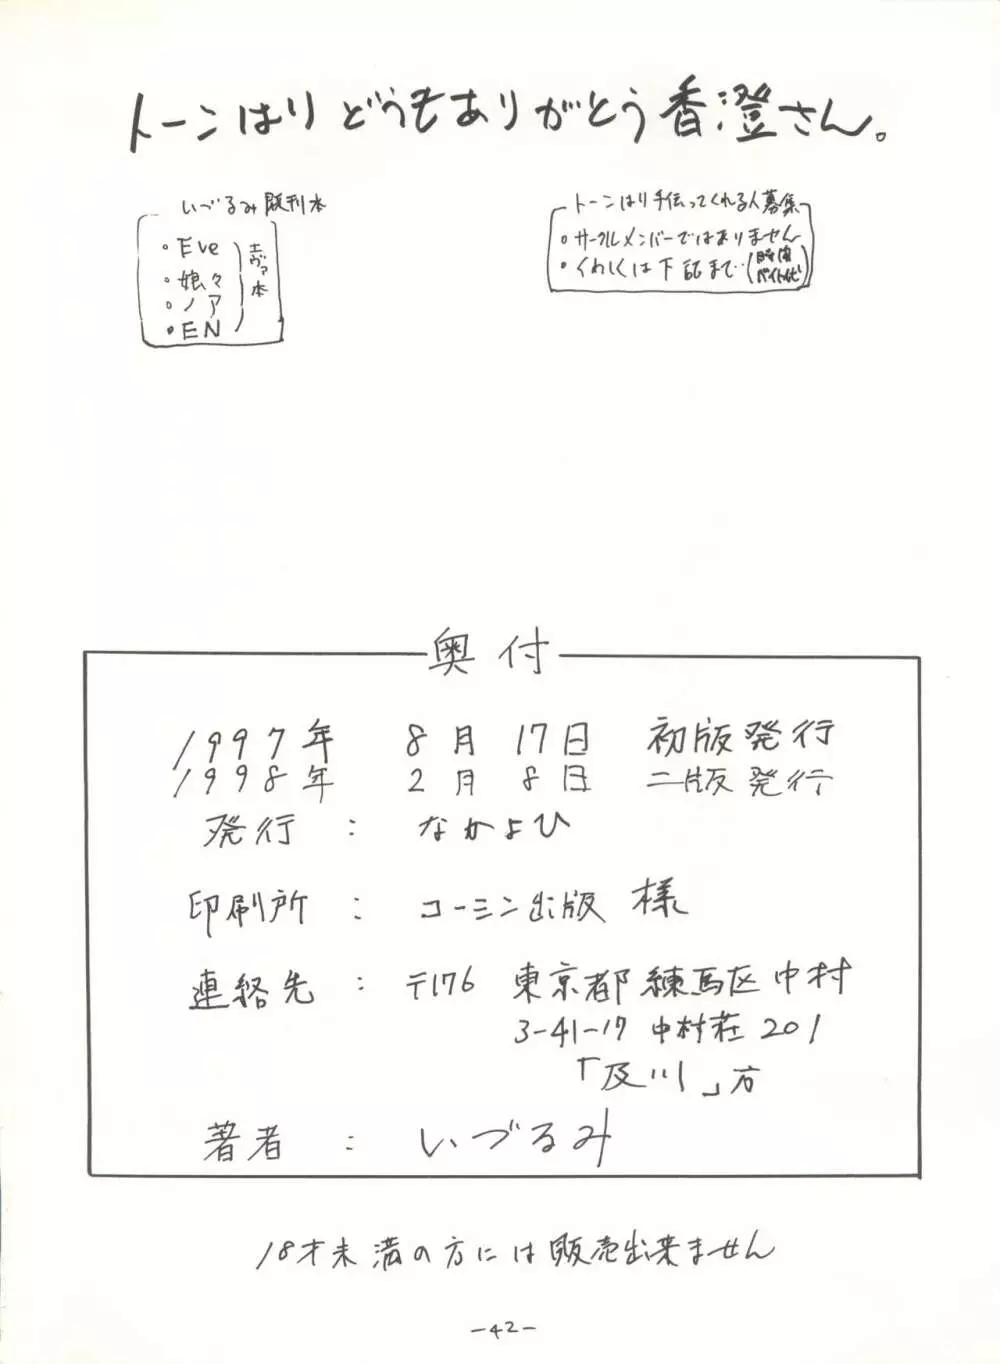 トーンはりどうもありがとう香澄さん。
いづるみ既刊本
・Eve
・娘々
・ノア
・EN
エヴァ本
トーンはり手伝ってくれる人募集
・サークルメンバーではありません
・くわしくは下記まで…
奥付
1997年 8月 17日 初版発行
1998年 2月 8日 二版発行
発行 : なかよひ
印刷所 : コーミン出版 様
連絡先 : 〒176 東京都練馬区中村
3-41-17 中村荘 201
「及川」方
著者 : いづるみ
18才未満の方には販売出来ません
-42-